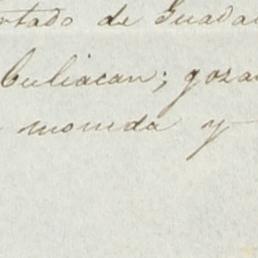 rtado de Guada
Culiacan; goza
moneda y